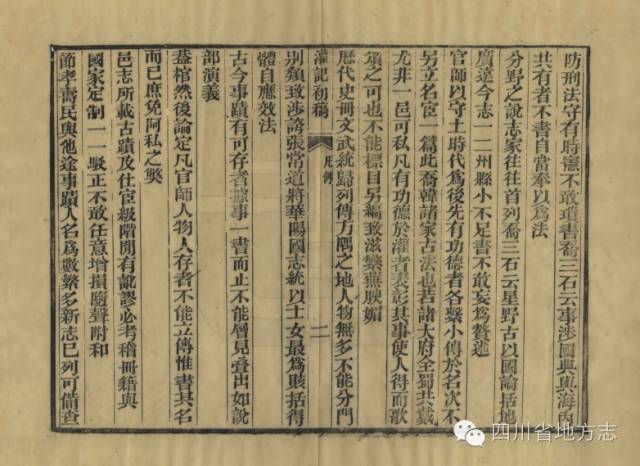 防刑法守有時憲不敢瓊書喬三石云事涉國典與海內
共有者不書自當奉以爲法
分野之說志家往往首列喬三石云星野古以國論括地
廣遠今志一二州縣小不足書不敢妄爲贅述
官師以守土時代爲後先有功德者各繫小傳於名次不
另立名宦一篇此喬韓諸家古法也若諸大府全蜀共戴
尤非一邑可私凡有功德於灌者表彰其事使人得而歌
頌之可也不能標目另編致滋繁蕪腴媚
歷代史冊文武統歸列傳方隅之地人物無多不能分門
灌記初稿 凡例 二
別類致涉誇張常道將華陽國志統以士女最爲賅括得
體自應效法
古今事蹟有可存者據事一書而止不能層見疊出如說
部演義
蓋棺然後論定凡官師人物人存者不能立傳惟書其名
而已庶免阿私之獘
邑志所載古蹟及仕宦級階閒有訛謬必考稽冊籍與
國家定制一一駁正不敢任意增損隨聲附和
節孝壽民與他途事蹟人名爲數繁多新志已列可備查
四川省地方志